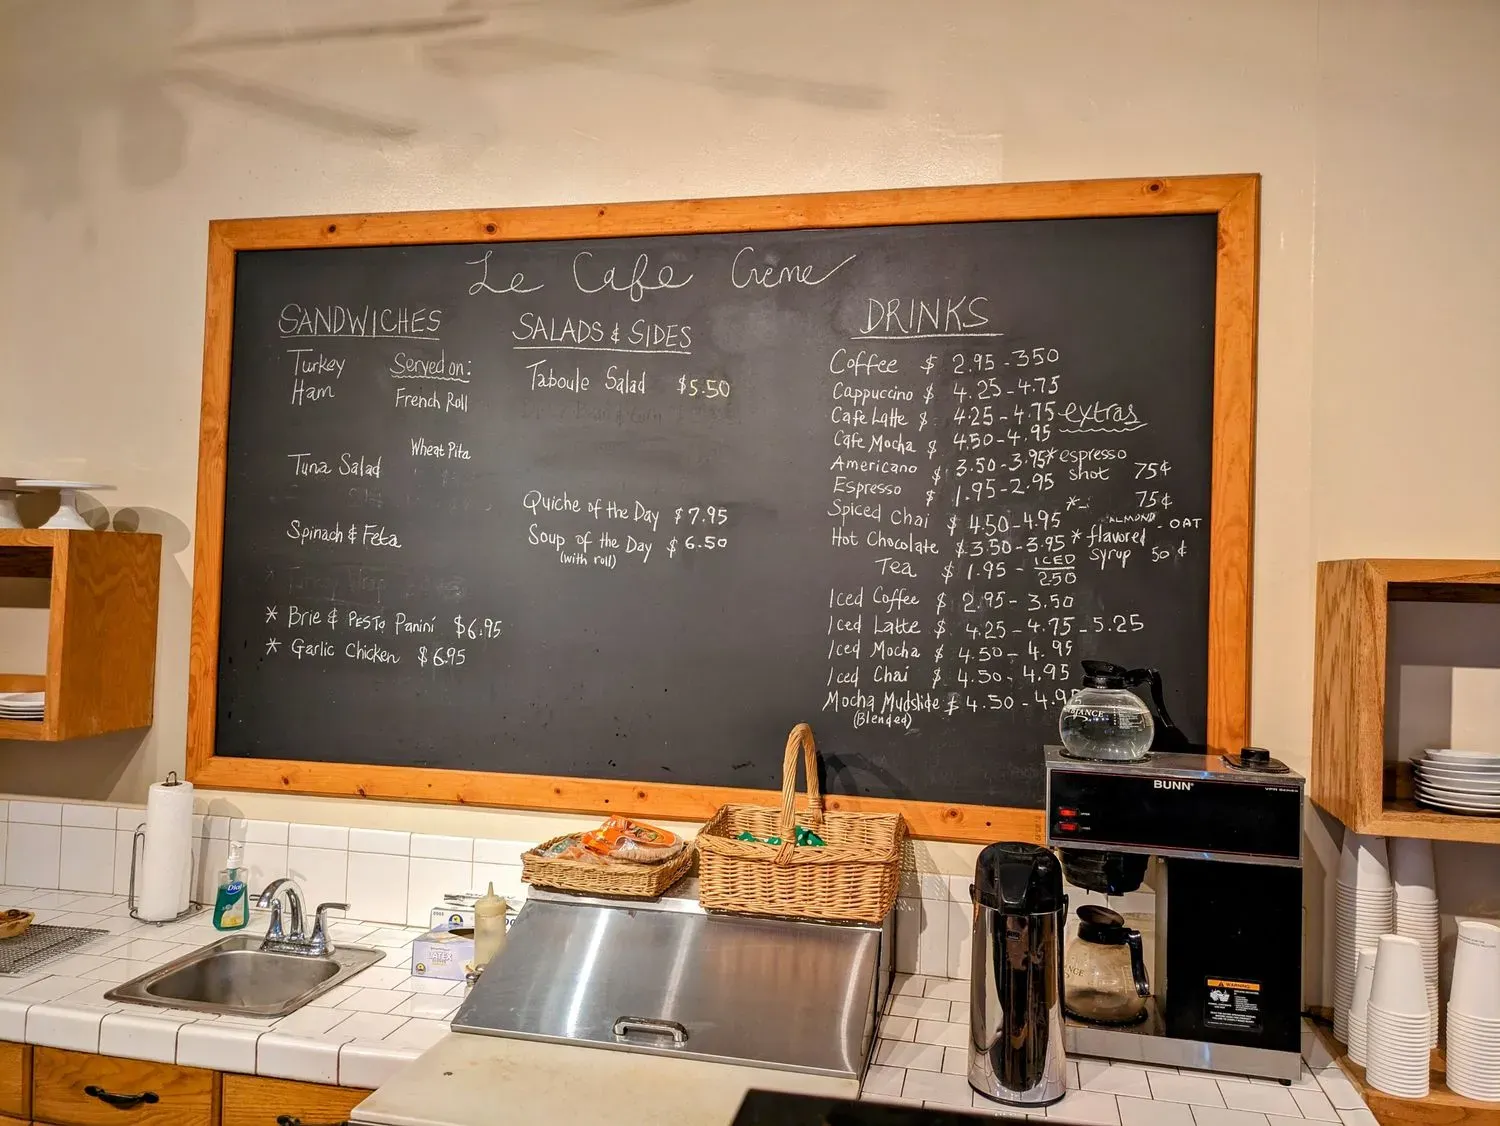 Le Cafe Creme
SANDWICHES
Turkey
Ham
Served on:
French Roll
Wheat Pita
Tuna Salad
Spinach & Feta
* Turkey Wrap
* Brie & PESTO Panini $6.95
* Garlic Chicken $6.95
SALADS & SIDES
Taboule Salad $5.50
Quiche of the Day $7.95
Soup of the Day $6.50
(with roll)
DRINKS
Coffee $ 2.95 - 350
Cappuccino $ 4.25 - 4.75
Cafe Latte $ 4.25 - 4.75
Cafe Mocha $ 450 - 4.95
Americano $ 3.50 - 3.95
Espresso $ 1.95 - 2.95
Spiced Chai $ 4.50 - 4.95
Hot Chocolate $ 3.50 - 3.95
Tea $ 1.95 - ICED 2.50
Iced Coffee $ 2.95 - 3.50
Iced Latte $ 4.25 - 4.75 - 5.25
Iced Mocha $ 4.50 - 4.95
Iced Chai $ 4.50 - 4.95
Mocha Mudslide $ 4.50 - 4.95
(Blended)
extras
* espresso
shot 75¢
* 75¢
ALMOND - OAT
* flavored
syrup 50¢
BUNN
WARNING
Dial
LATEX